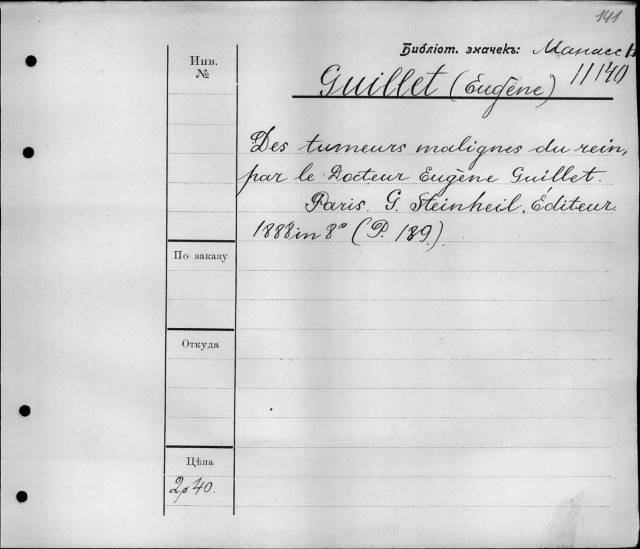 141
Библіот. значекъ: Манассе
11140
Инв. №
Guillet (Eugène)
Des tumeurs malignes du rein,
par le Docteur Eugène Guillet.
Paris. G. Steinheil, Éditeur.
1888 in 8° (P. 189.)
По заказу
Откуда
Цѣна
2р 40.